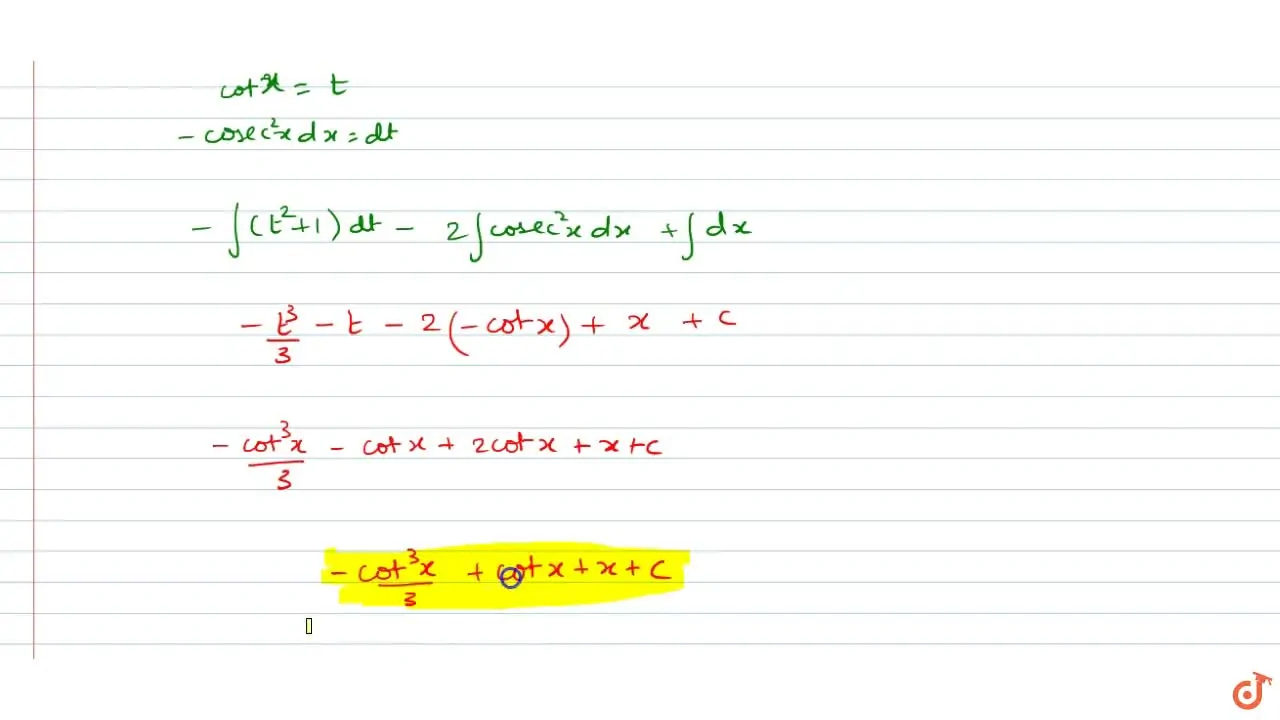 cot x = t
- cosec²x dx = dt
- ∫(t²+1) dt - 2∫cosec²x dx + ∫dx
- t³/3 - t - 2(-cot x) + x + c
- cot³x/3 - cot x + 2cot x + x + c
- cot³x/3 + cot x + x + c